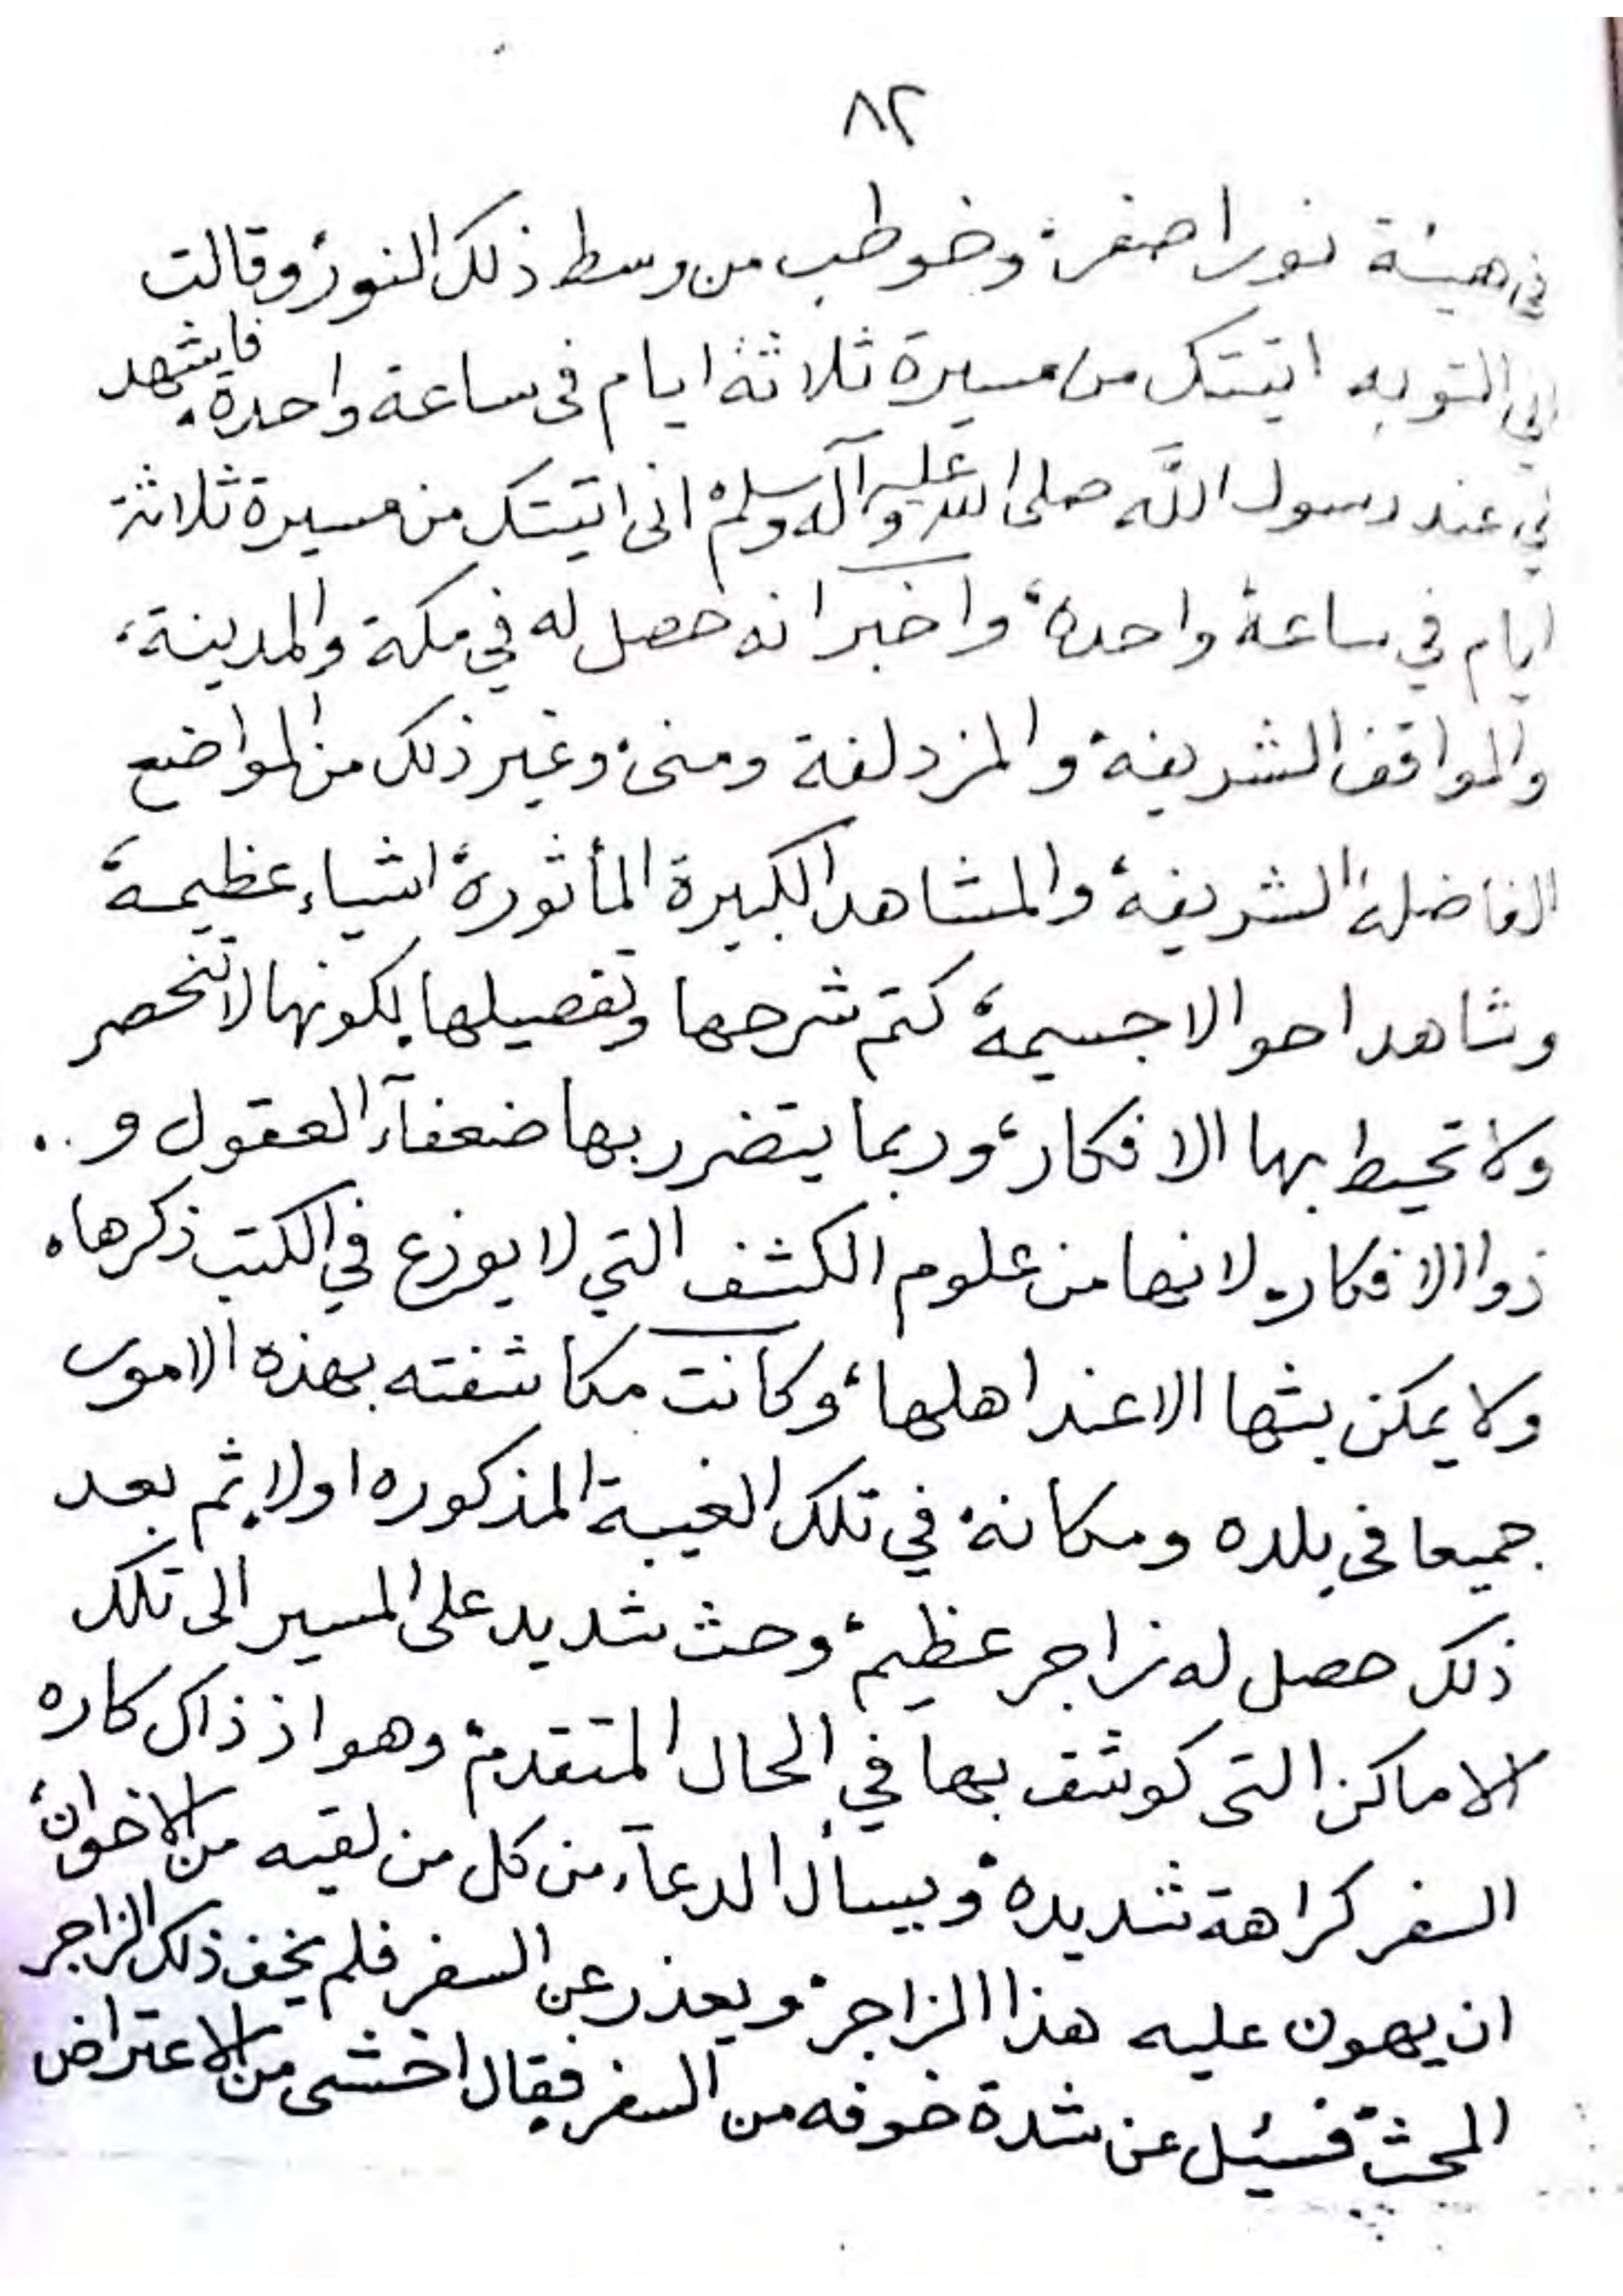 ٨٢
في هيئة نور اصفر، وخوطب من وسط ذلك النور، وقالت
لي التوبه اتيتك من مسيرة ثلاثة ايام في ساعة واحدة، فايشهد
لي عند رسول الله صلى الله عليه وآله وسلم اني اتيتك من مسيرة ثلاثة
ايام في ساعة واحدة، واخبر انه حصل له في مكة والمدينة،
والمواقف الشريفة والمزدلفة ومنى، وغير ذلك من المواضع
الفاضلة الشريفة، والمشاهد الكبيرة المأثورة، اشياء عظيمة،
وشاهد احوالا جسيمة، كتم شرحها وتفصيلها لكونها لا تنحصر
ولا تحيط بها الافكار، وربما يتضرر بها ضعفآء العقول و..
ذوا الافكار. لانها من علوم الكشف التي لا يوزع في الكتب ذكرها،
ولا يمكن بثها الا عند اهلها، وكانت مكاشفته بهذه الامور
جميعا في بلده ومكانة، في تلك الغيبة المذكوره اولا، ثم بعد
ذلك حصل له زاجر عظيم، وحث شديد على المسير الى تلك
الاماكن التي كوشف بها في الحال المتقدم، وهو اذ ذاك كاره
السفر كراهة شديدة، ويسأل الدعآء من كل من لقيه من الاخوان،
ان يهون عليه هذا الزاجر، ويعذر عن السفر فلم يخف ذلك الزاجر
المحث، فسئل عن شدة خوفه من السفر فقال اخشى من الاعتراض